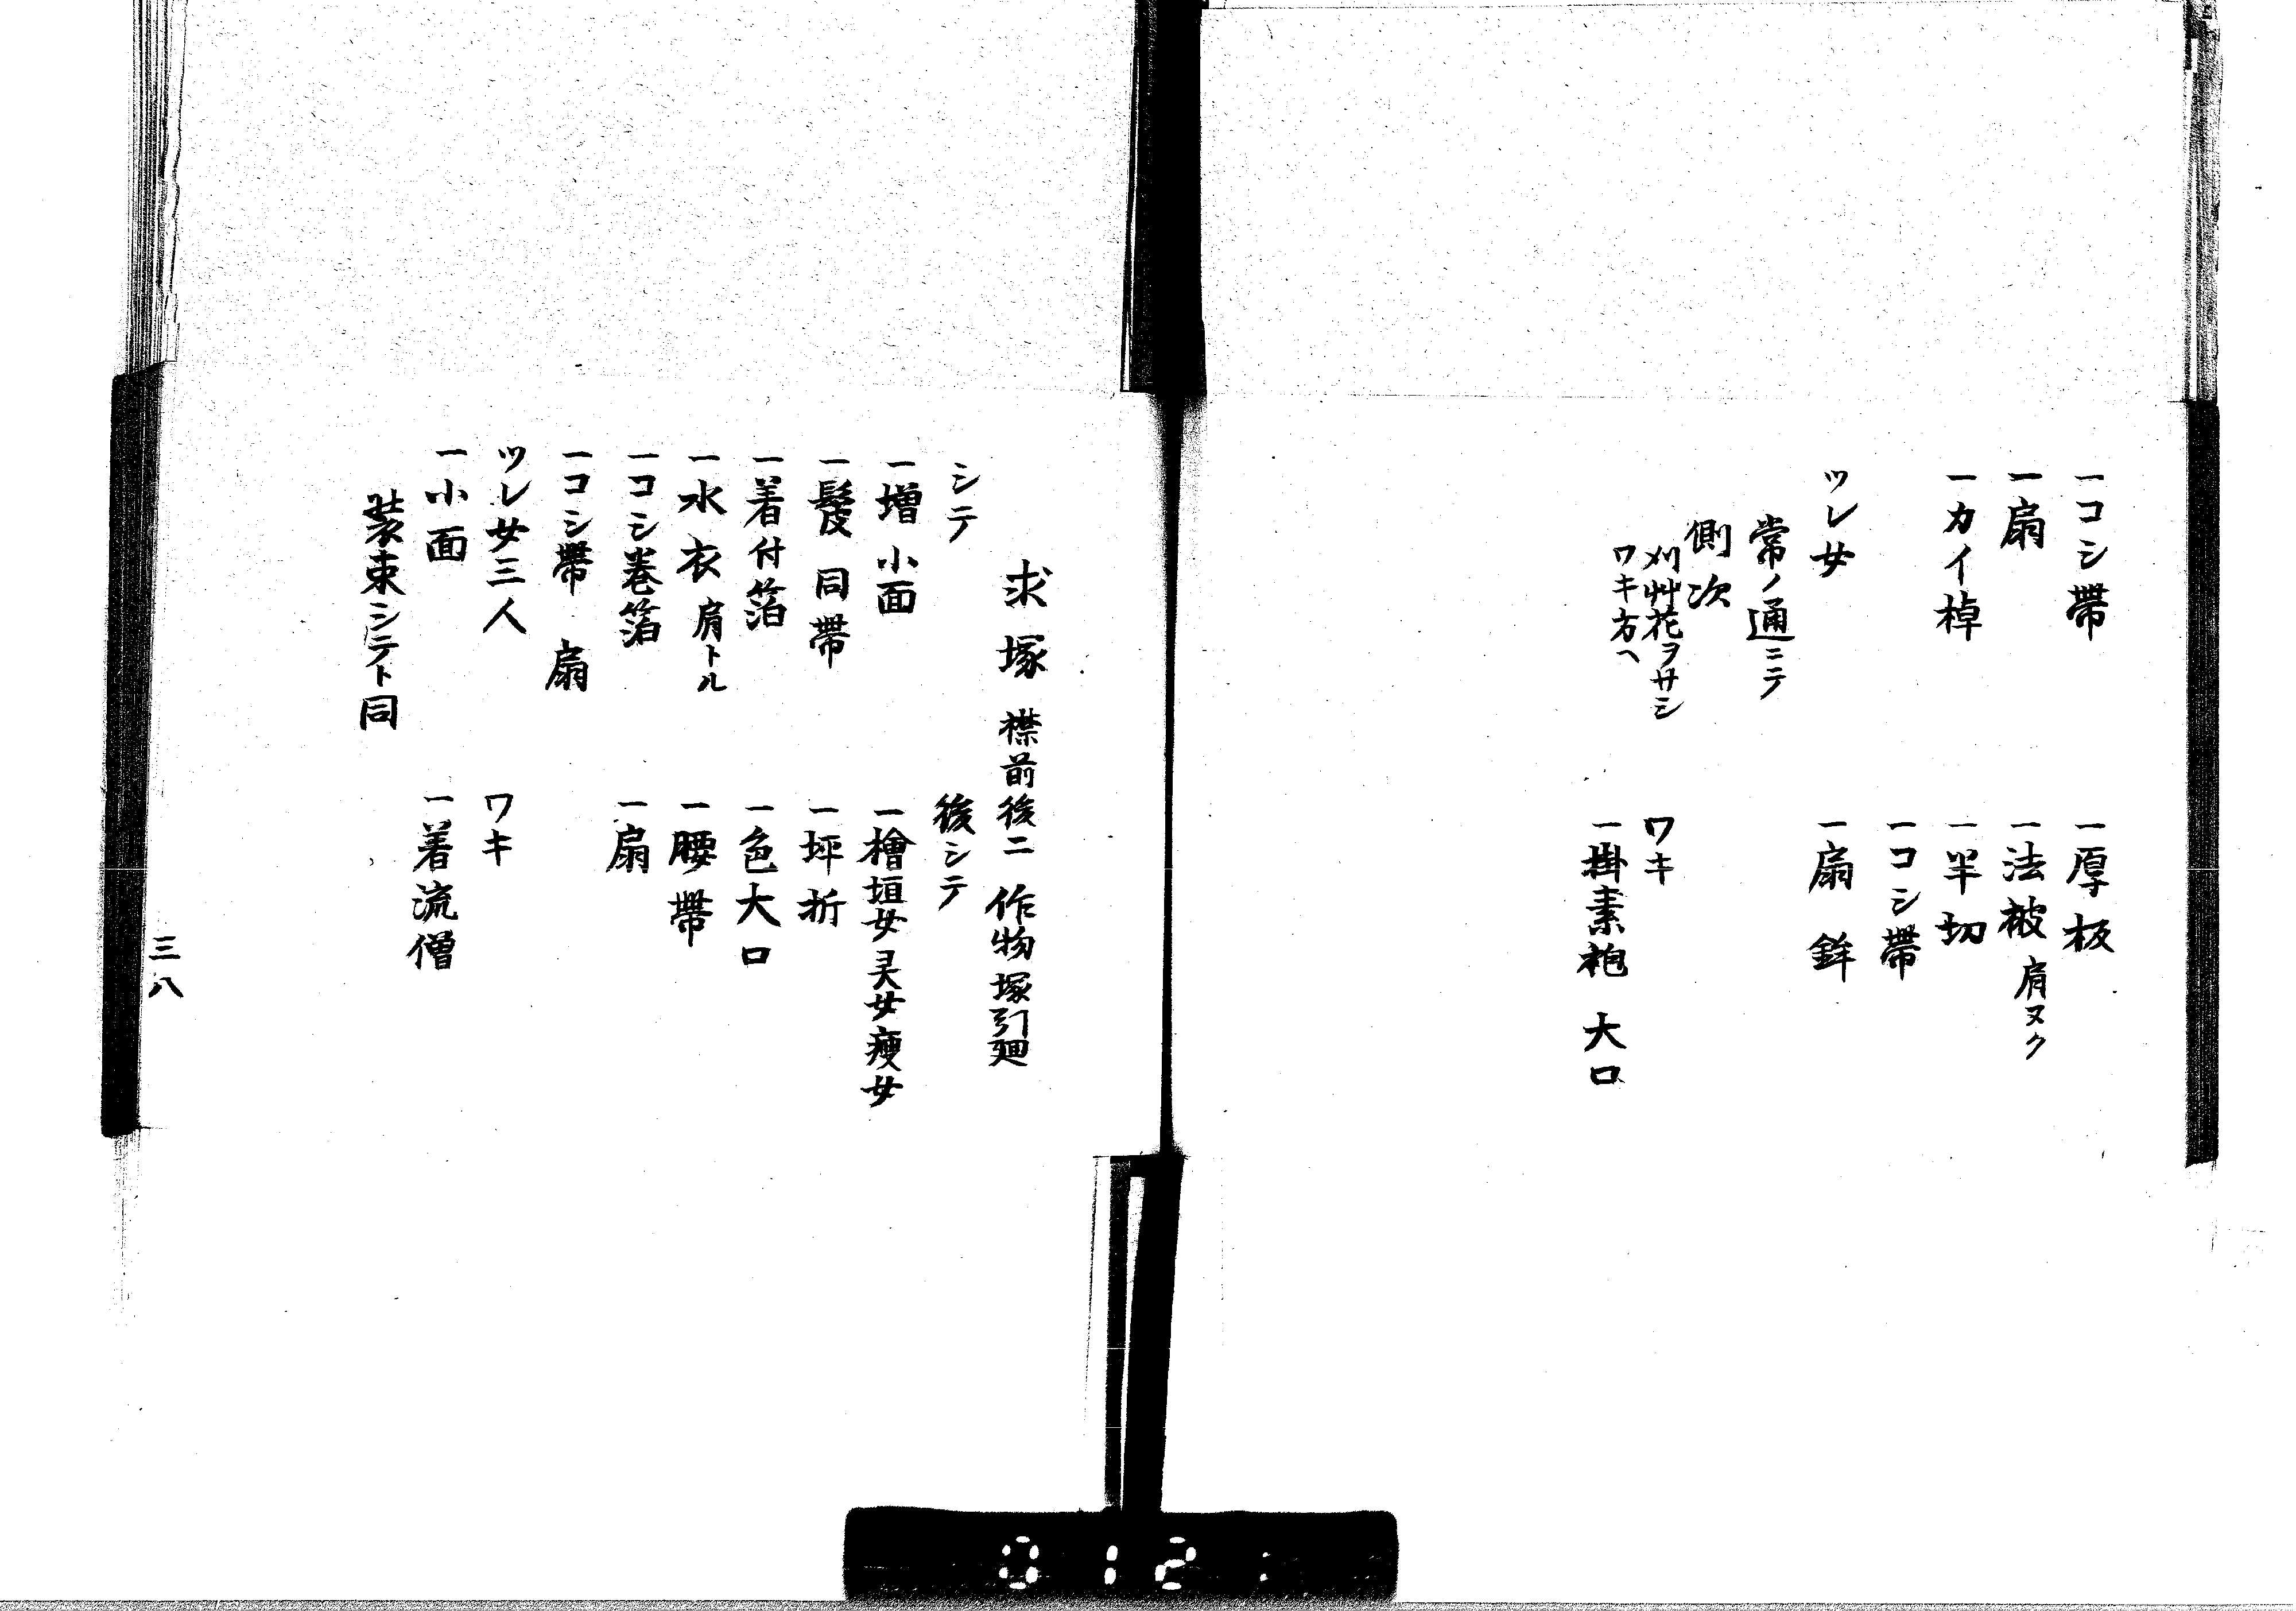 一コシ帯
一扇
一カイ棹
ツレ女
常ノ通ニテ
側次
刈艸花ヲサシ
ワキ方ヘ
一厚板
一法被 肩ヌク
一半切
一コシ帯
一扇 鉾
ワキ
一掛素袍 大口
求塚 襟前後二 作物塚引廻
シテ
一増 小面
一鬘 同帯
一着付箔
一水衣 肩トル
一コシ巻箔
一コシ帯 扇
ツレ女三人
一小面
装束シテト同
後シテ
一檜垣女 灵女 痩女
一坪折
一色大口
一腰帯
一扇
ワキ
一着流僧
三八
012